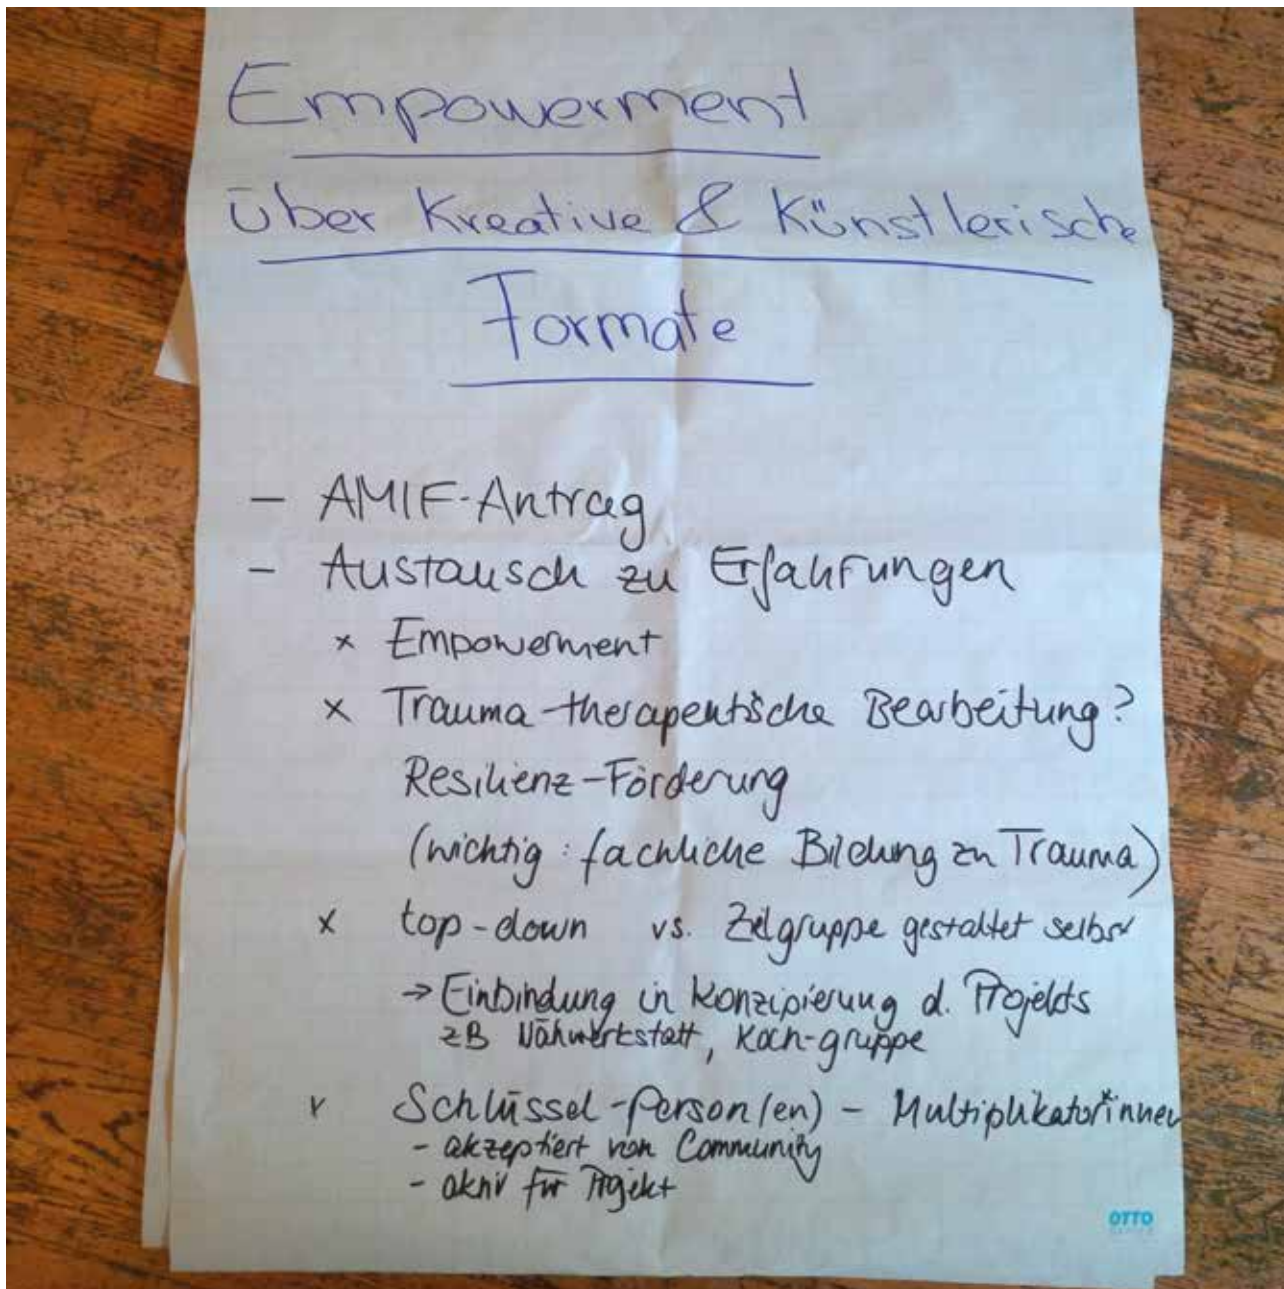 Empowerment
über Kreative & Künstlerische
Formate
- AMIF-Antrag
- Austausch zu Erfahrungen
x Empowerment
x Trauma-therapeutische Bearbeitung?
Resilienz-Förderung
(wichtig: fachliche Bildung zu Trauma)
x top-down vs. Zielgruppe gestaltet selbst
→ Einbindung in Konzipierung d. Projekts
zB Nähwerkstatt, Koch-gruppe
x Schlüssel-Person/en) - Multiplikator*innen
- akzeptiert von Community
- aktiv für Projekt
OTTO